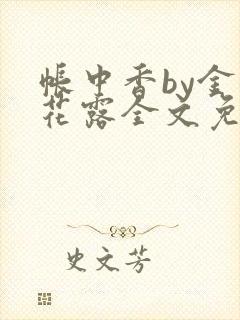 帐中香by金
花露全文免
史文芳